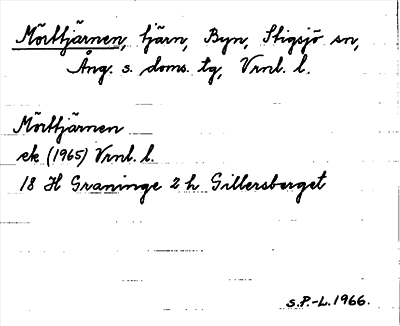 Mörttjärnen, tjärn, Byn, Stigsjö sn,
Ång. s. doms. tg, Vrnl. l.
Mörttjärnen
ek (1965) Vrnl. l.
18 H Graninge 2 h Gillersberget
S.P.-L. 1966.